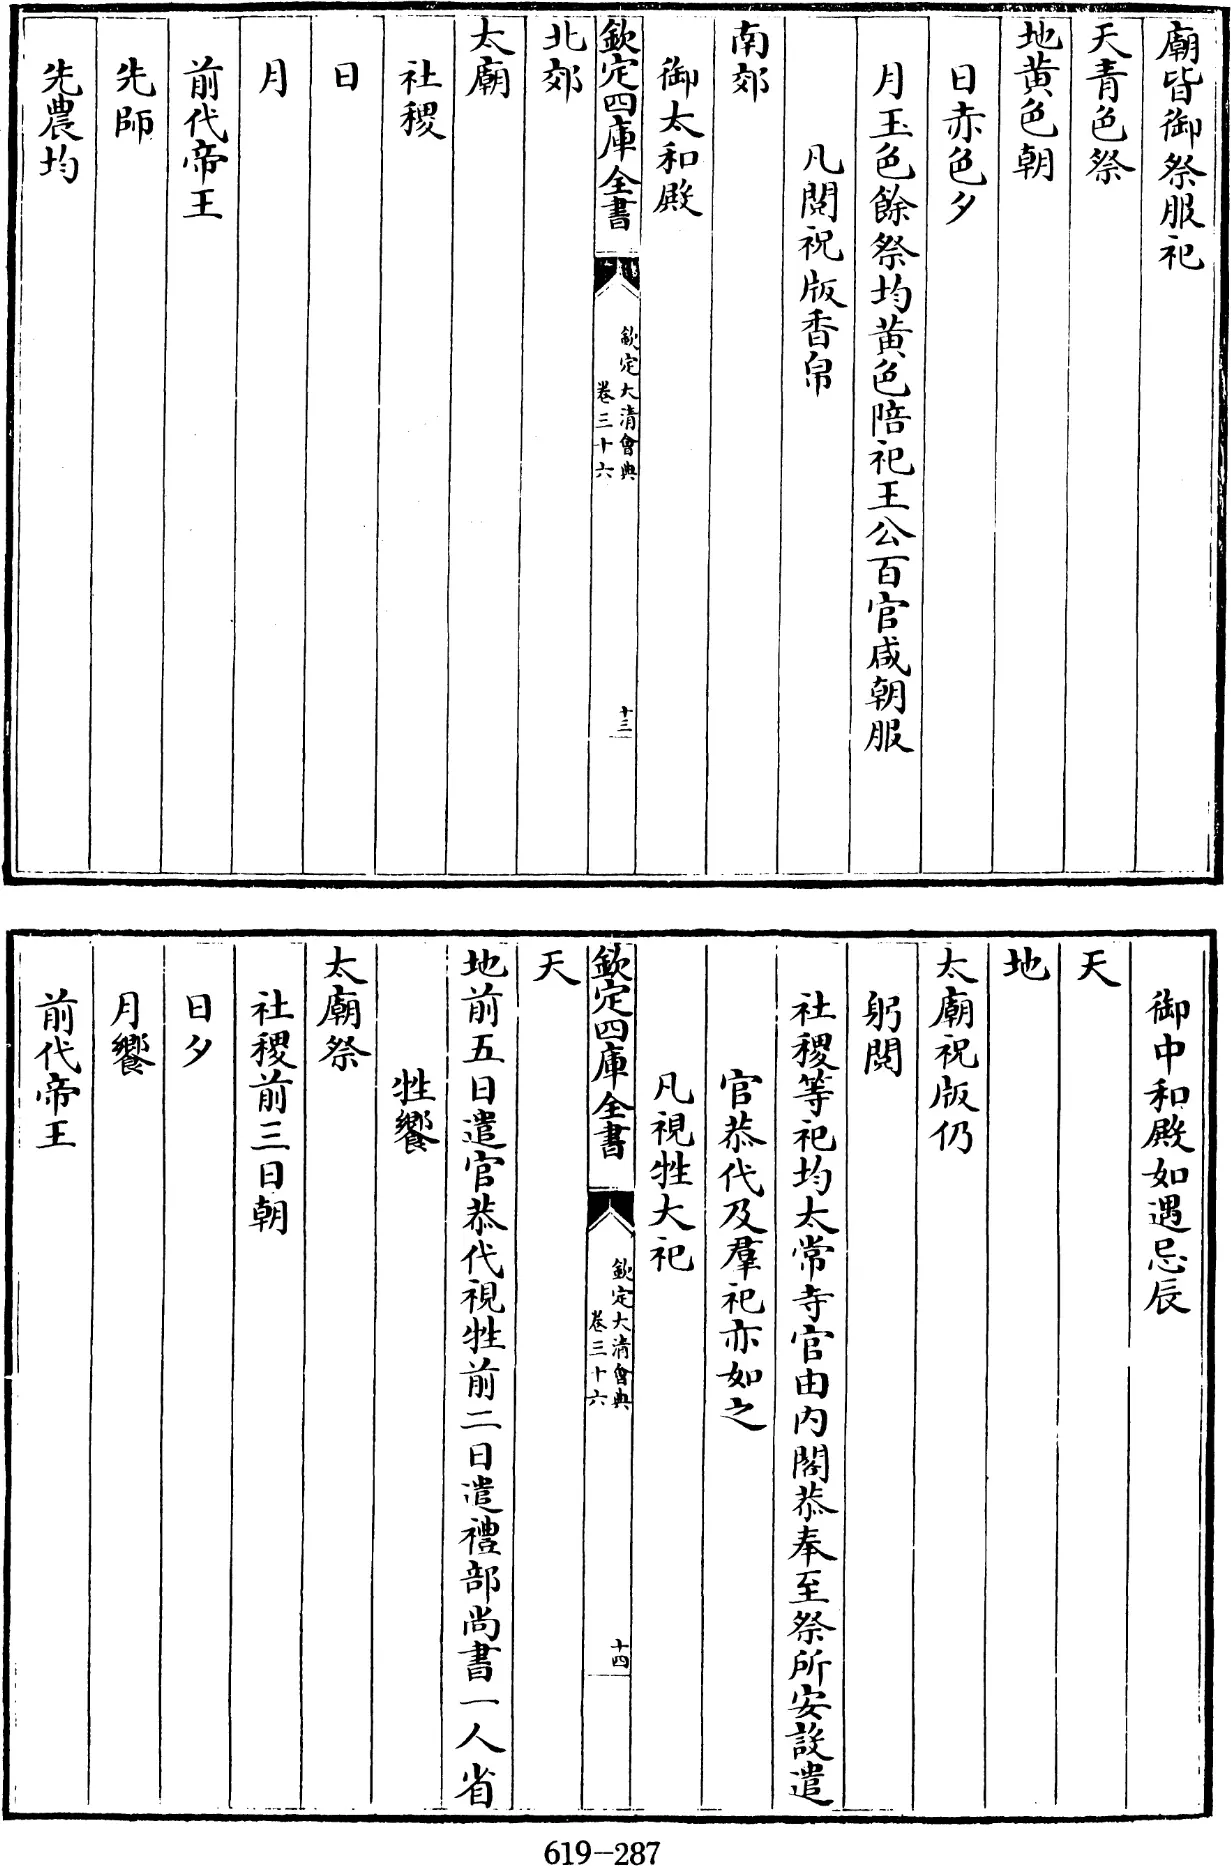 廟皆御祭服祀
天青色祭
地黄色朝
日赤色夕
月玉色餘祭均黄色陪祀王公百官咸朝服
凡閱祝版香帛
南郊
御太和殿
欽定四庫全書
欽定大清會典
卷三十六
十三
北郊
太廟
社稷
日
月
前代帝王
先師
先農均
御中和殿如遇忌辰
天
地
太廟祝版仍
躬閱
社稷等祀均太常寺官由内閣恭奉至祭所安設遣
官恭代及羣祀亦如之
凡視牲大祀
欽定四庫全書
欽定大清會典
卷三十六
十四
天
地前五日遣官恭代視牲前二日遣禮部尚書一人省
牲饗
太廟祭
社稷前三日朝
日夕
月饗
前代帝王
619-287